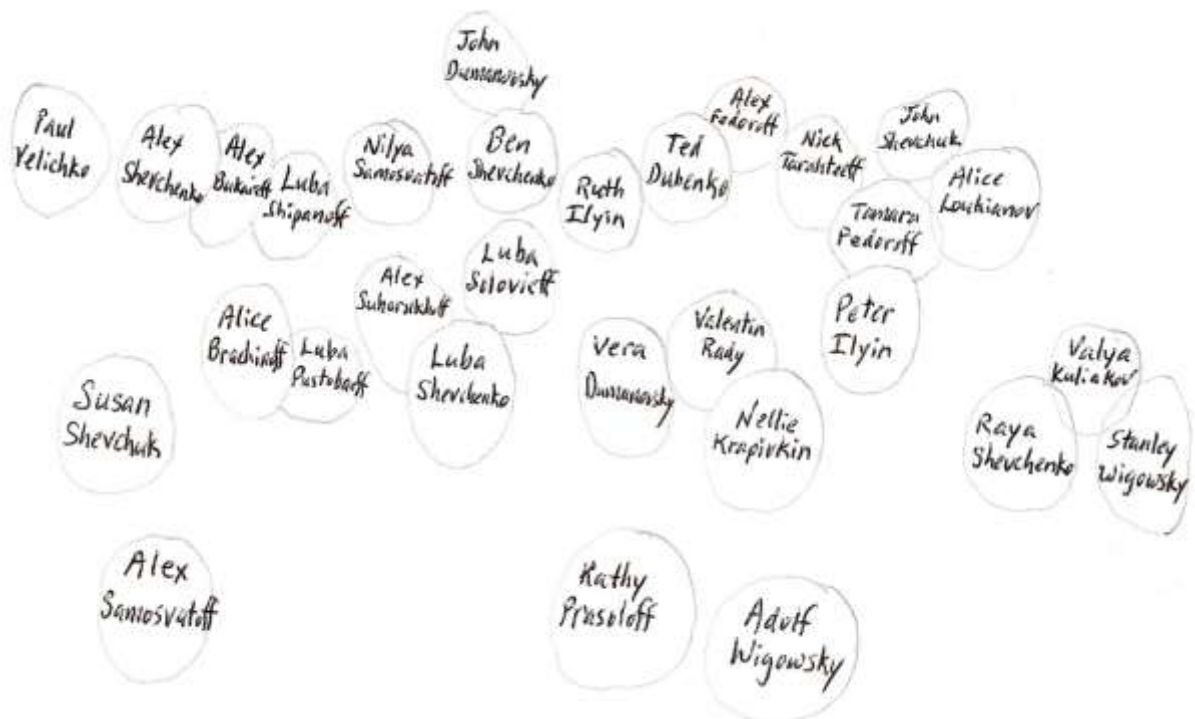 John
Dumanovsky
Paul
Velichko
Alex
Shevchenko
Alex
Luba
Shipanoff
Nilya
Samosvatoff
Ben
Shevchenko
Ruth
Ilyin
Ted
Dubenko
Alex
Fedoroff
Nick
John
Shevchuk
Alice
Loukianov
Tamara
Fedoroff
Peter
Ilyin
Luba
Solovieff
Alex
Alice
Luba
Luba
Shevchenko
Vera
Dumanovsky
Valentin
Rady
Nellie
Krapivkin
Valya
Kuliakov
Raya
Shevchenko
Stanley
Wigowsky
Susan
Shevchuk
Alex
Samosvatoff
Kathy
Prasoloff
Adolf
Wigowsky